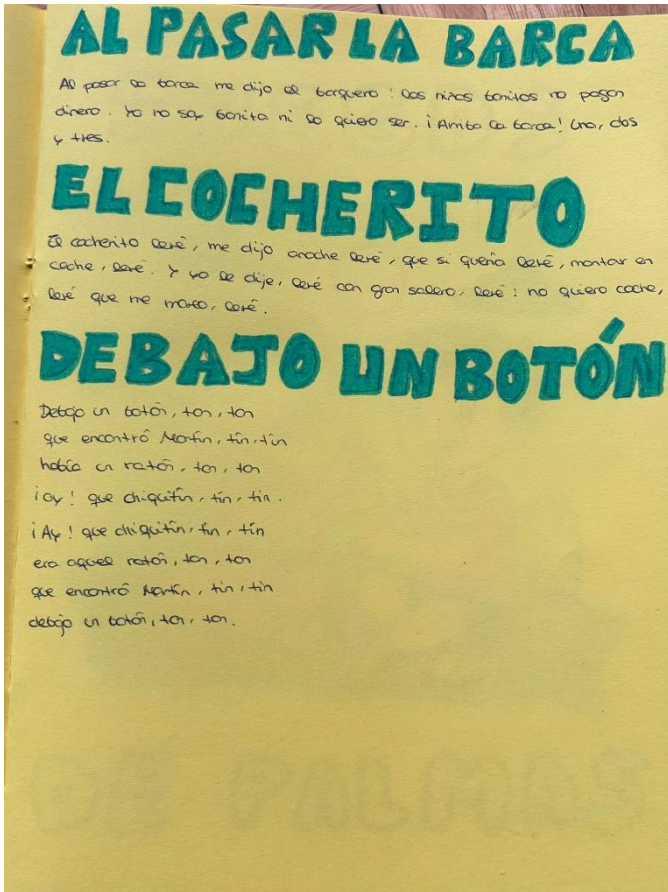 AL PASAR LA BARCA
Al pasar la barca me dijo el barquero: las niñas bonitas no pagan
dinero. Yo no soy bonita ni lo quiero ser. ¡Arriba la barca! Una, dos
y tres.
EL COCHERITO
El cocherito leré, me dijo anoche leré, que si quería leré, montar en
coche, leré. Y yo le dije, leré con gran salero, leré: no quiero coche,
leré que me mareo, leré.
DEBAJO UN BOTÓN
Debajo un botón, ton, ton
que encontró Martín, tín, tín
había un ratón, ton, ton
¡ay! que chiquitín, tín, tin.
¡Ay! que chiquitín, tin, tín
era aquel ratón, ton, ton
que encontró Martín, tin, tin
debajo un botón, ton, ton.